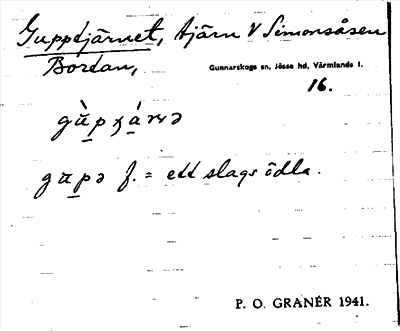 Gupptjärnet, tjärn V Simonsåsen
Bortan,
Gunnarskogs sn, Jösse hd, Värmlands l.
16.
gupə f. = ett slags ödla.
P. O. GRANÉR 1941.